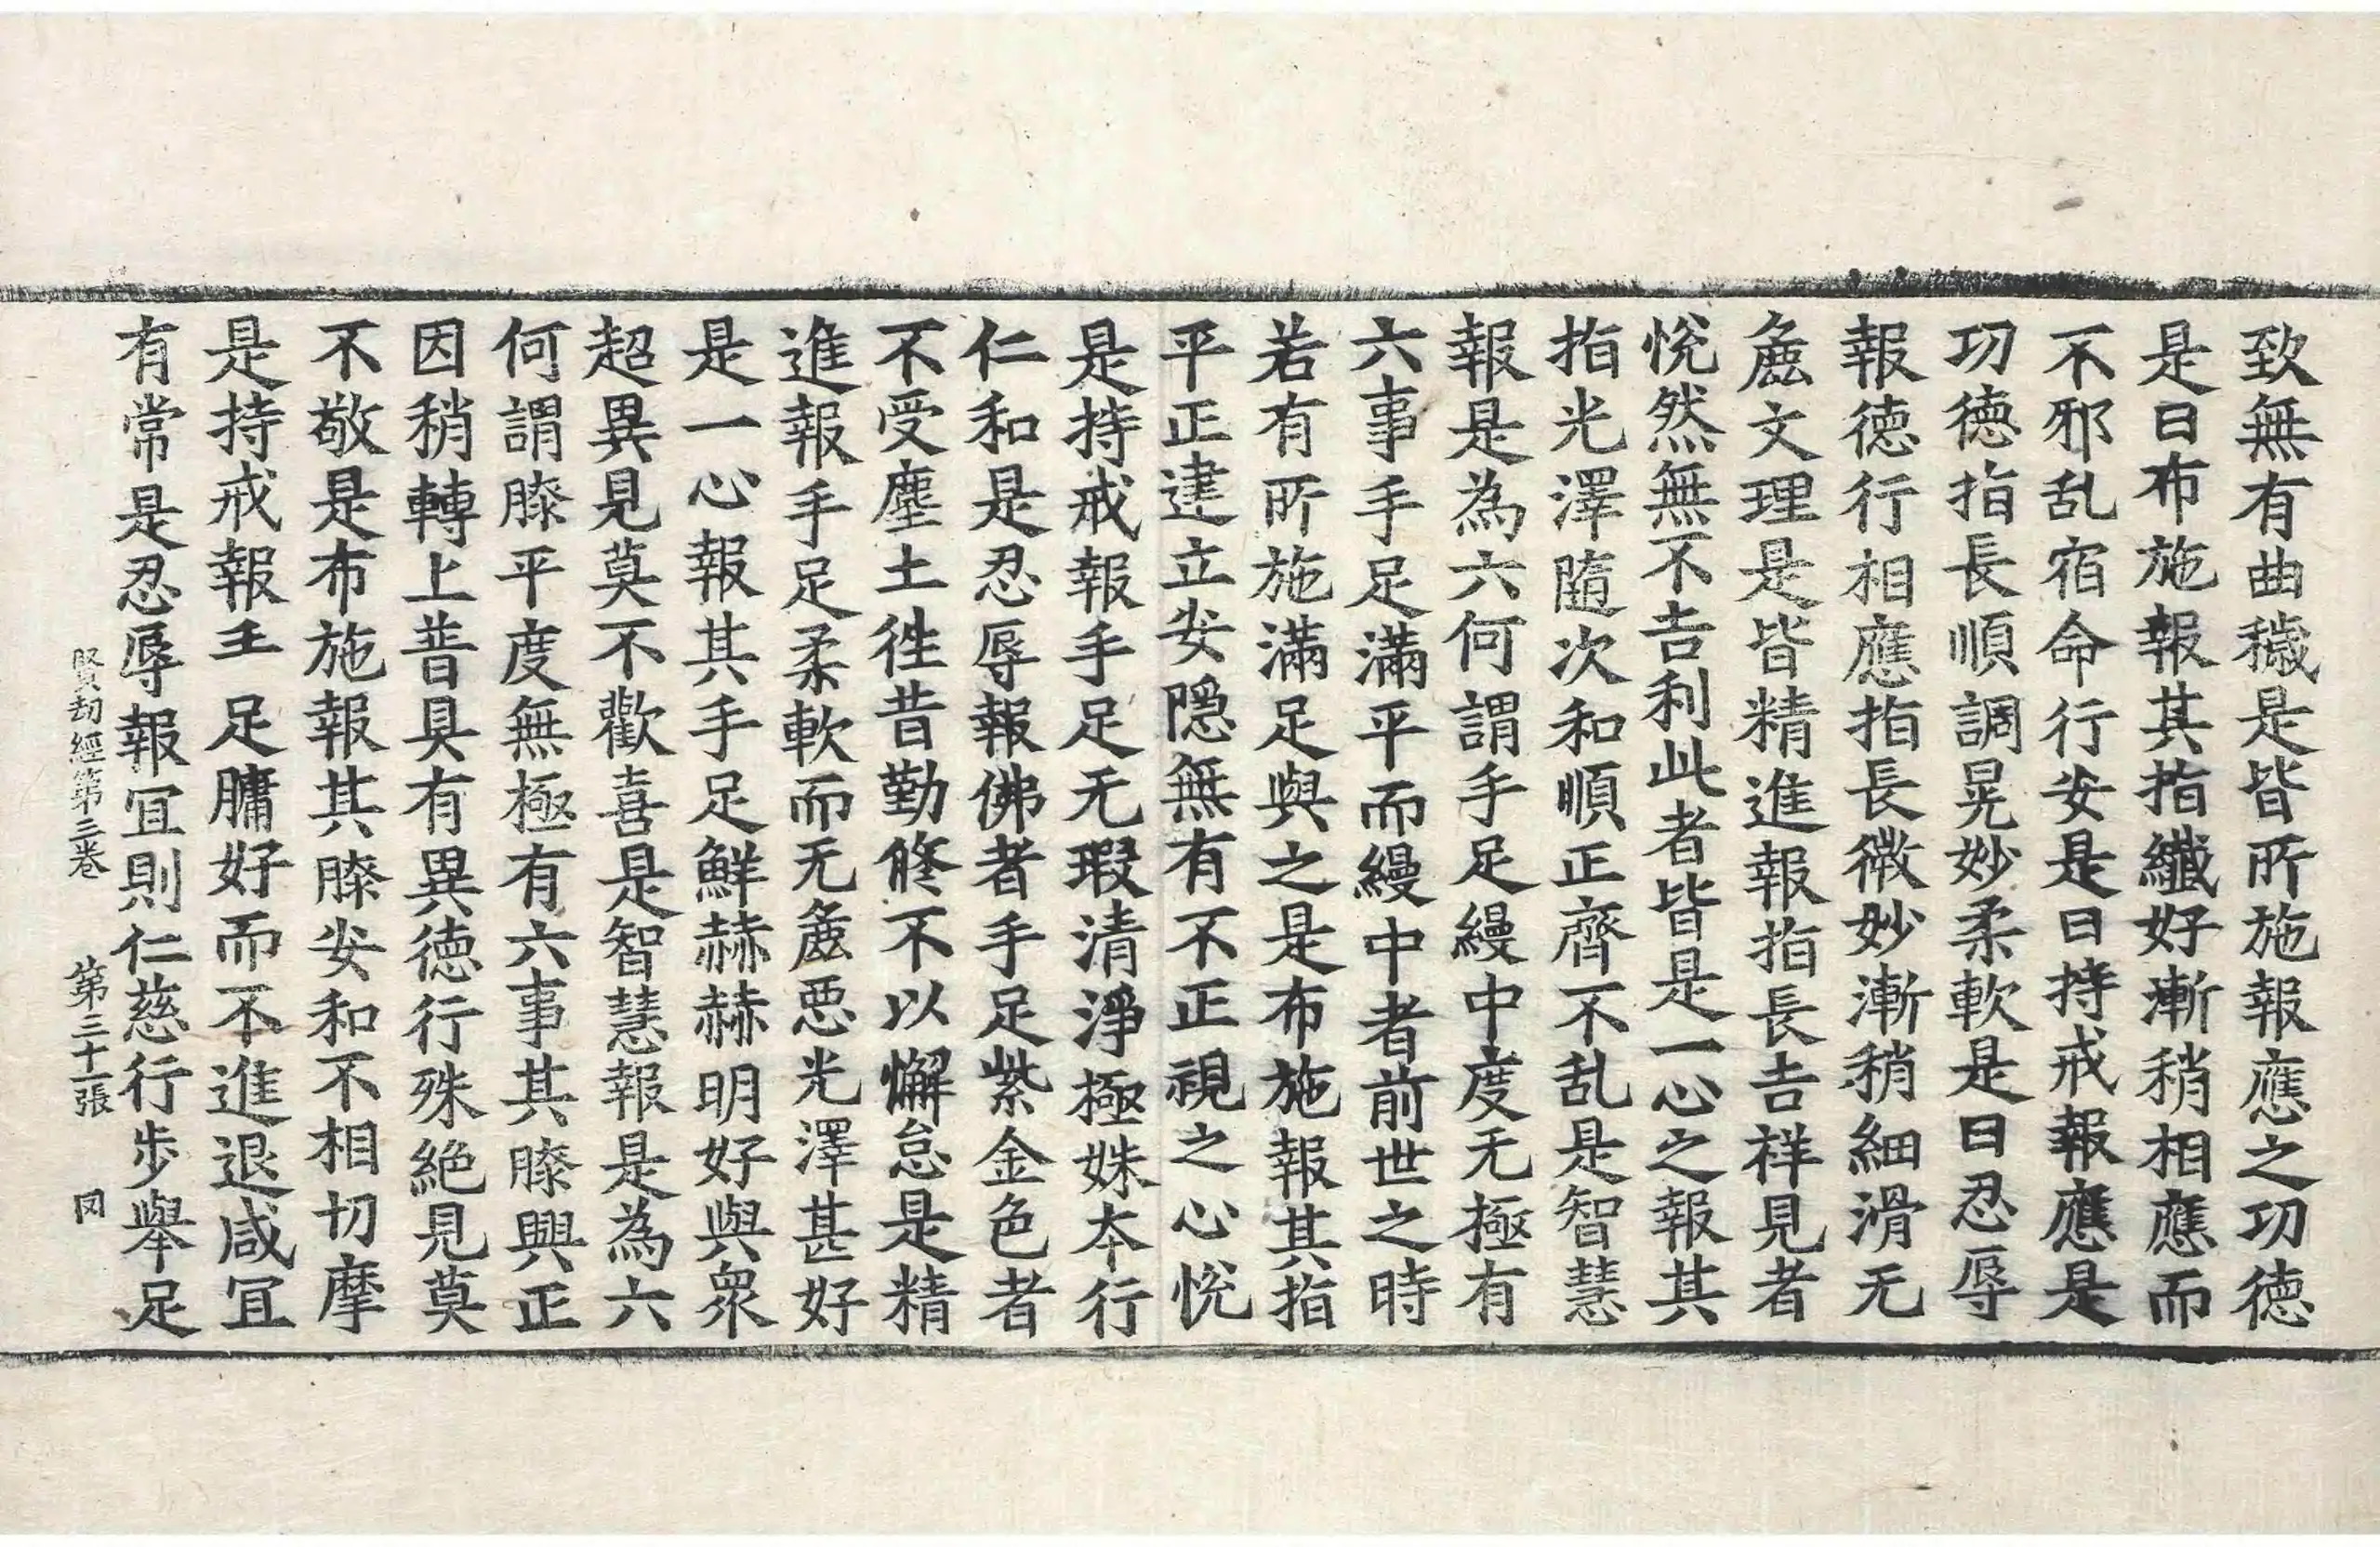 致無有曲穢是皆所施報應之功德
是曰布施報其指纖好漸稍相應而
不邪乱宿命行安是曰持戒報應是
功德指長順調晃妙柔軟是曰忍辱
報德行相應指長微妙漸稍細滑无
麁文理是皆精進報指長吉祥見者
悅然無不吉利此者皆是一心之報其
指光澤隨次和順正齊不乱是智慧
報是為六何謂手足縵中度无極有
六事手足滿平而縵中者前世之時
若有所施滿足與之是布施報其指
平正建立安隱無有不正視之心悅
是持戒報手足无瑕清淨極姝本行
仁和是忍辱報佛者手足紫金色者
不受塵土徃昔勤修不以懈怠是精
進報手足柔軟而无麁惡光澤甚好
是一心報其手足鮮赫赫明好與衆
超異見莫不歡喜是智慧報是為六
何謂膝平度無極有六事其膝興正
因稍轉上普具有異德行殊絶見莫
不敬是布施報其膝安和不相切摩
是持戒報𤣩足𦟛好而不進退咸冝
有常是忍辱報冝則仁慈行步舉足
賢劫經第三卷 第三十一張